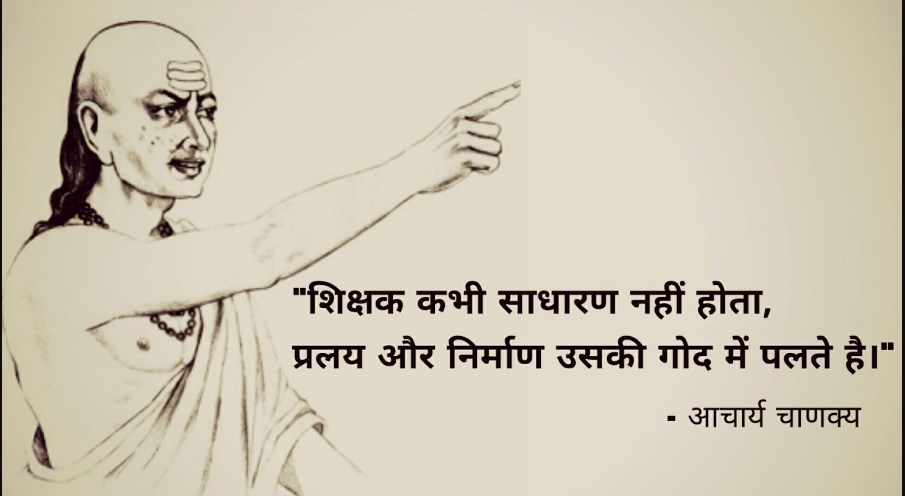 "शिक्षक कभी साधारण नहीं होता,
प्रलय और निर्माण उसकी गोद में पलते है।"
- आचार्य चाणक्य